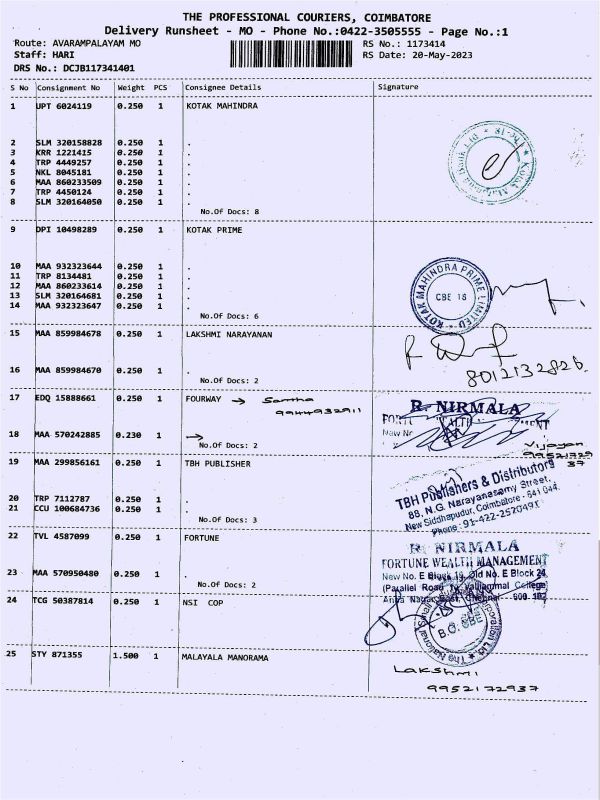 THE PROFESSIONAL COURIERS, COIMBATORE
Delivery Runsheet - MO - Phone No.:0422-3505555 - Page No.:1
Route: AVARAMPALAYAM MO RS No.: 1173414
Staff: HARI RS Date: 20-May-2023
DRS No.: DCJB117341401
S No Consignment No Weight PCS Consignee Details Signature
1 UPT 6024119 0.250 1 KOTAK MAHINDRA
2 SLM 320158828 0.250 1 .
3 KRR 1221415 0.250 1 .
4 TRP 4449257 0.250 1 .
5 NKL 8045181 0.250 1 .
6 MAA 860233509 0.250 1 .
7 TRP 4450124 0.250 1 .
8 SLM 320164050 0.250 1 .
No.Of Docs: 8
9 DPI 10498289 0.250 1 KOTAK PRIME
10 MAA 932323644 0.250 1 .
11 TRP 8134481 0.250 1 .
12 MAA 860233614 0.250 1 .
13 SLM 320164681 0.250 1 .
14 MAA 932323647 0.250 1 .
No.Of Docs: 6
KOTAK MAHINDRA PRIME LIMITED
CBE 18
15 MAA 859984678 0.250 1 LAKSHMI NARAYANAN
16 MAA 859984670 0.250 1 .
No.Of Docs: 2
8012132826.
17 EDQ 15888661 0.250 1 FOURWAY →
9944932911
R. NIRMALA
18 MAA 570242885 0.230 1 →
No.Of Docs: 2
New No
Vijayan
99521729
37
19 MAA 299856161 0.250 1 TBH PUBLISHER
20 TRP 7112787 0.250 1 .
21 CCU 100684736 0.250 1 .
No.Of Docs: 3
TBH Publishers & Distributors
88, N.G. Narayanasamy Street,
New Siddhapudur, Coimbatore - 641 044.
Phone: 91-422-2520491
22 TVL 4587099 0.250 1 FORTUNE
23 MAA 570950480 0.250 1 .
No.Of Docs: 2
R. NIRMALA
FORTUNE WEALTH MANAGEMENT
New No. E Block 19, Old No. E Block 24
(Parallel Road Valliammal College)
Anna Nagar East, Chennai - 600 102
24 TCG 50387814 0.250 1 NSI COP
25 STY 871355 1.500 1 MALAYALA MANORAMA
Lakshmi
9952172937